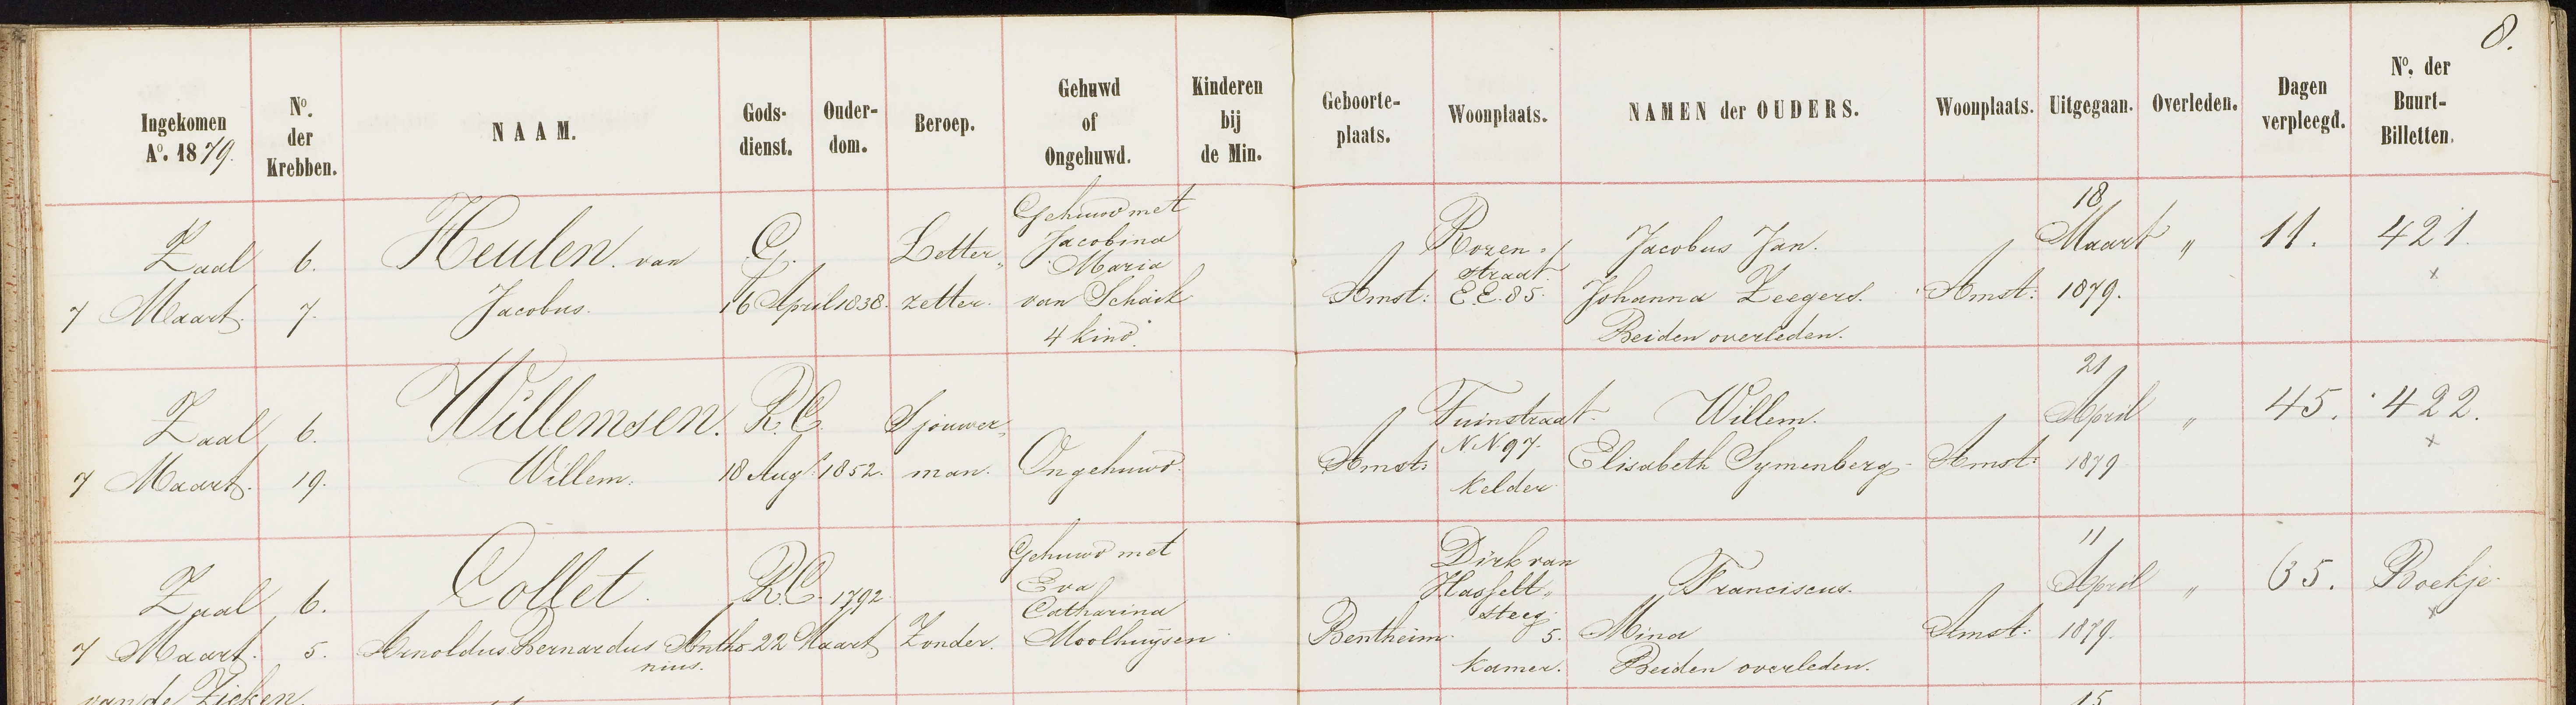 8.
Ingekomen
Aº. 1879.
Nº.
der
Krebben.
NAAM.
Gods-
dienst.
Ouder-
dom.
Beroep.
Gehuwd
of
Ongehuwd.
Kinderen
bij
de Min.
Geboorte-
plaats.
Woonplaats.
NAMEN der OUDERS.
Woonplaats.
Uitgegaan.
Overleden.
Dagen
verpleegd.
Nº. der
Buurt-
Billetten.
Zaal
7 Maart.
6.
7.
Heulen. van
Jacobus.
G.
16 April 1838.
Letter„
zetter.
Gehuwd met
Jacobina
Maria
van Schaik
4 kind.
Amst:
Rozen„
straat.
EE.85.
Jacobus Jan.
Johanna Zeegers.
Beiden overleden.
Amst:
18
Maart
1879.
„
11.
421.
x
Zaal
7 Maart.
6.
19.
Willemsen.
Willem.
R.C.
18 Augs. 1852.
Sjouwer„
man.
Ongehuwd.
Amst:
Tuinstraat
NN 97.
kelder
Willem.
Elisabeth Symenberg
Amst:
21
April
1879
„
45.
422.
x
Zaal
7 Maart.
6.
5.
Collet.
Arnoldus Bernardus Antho
nius.
R.C.
1792
22 Maart
Zonder.
Gehuwd met
Eva
Catharina
Moolhuijsen
Bentheim.
Dirk van
Hasselt„
steeg
5.
kamer.
Franciscus.
Mina
Beiden overleden.
Amst:
11
April
1879.
„
35.
Boekje.
x
van de Zieken.
15